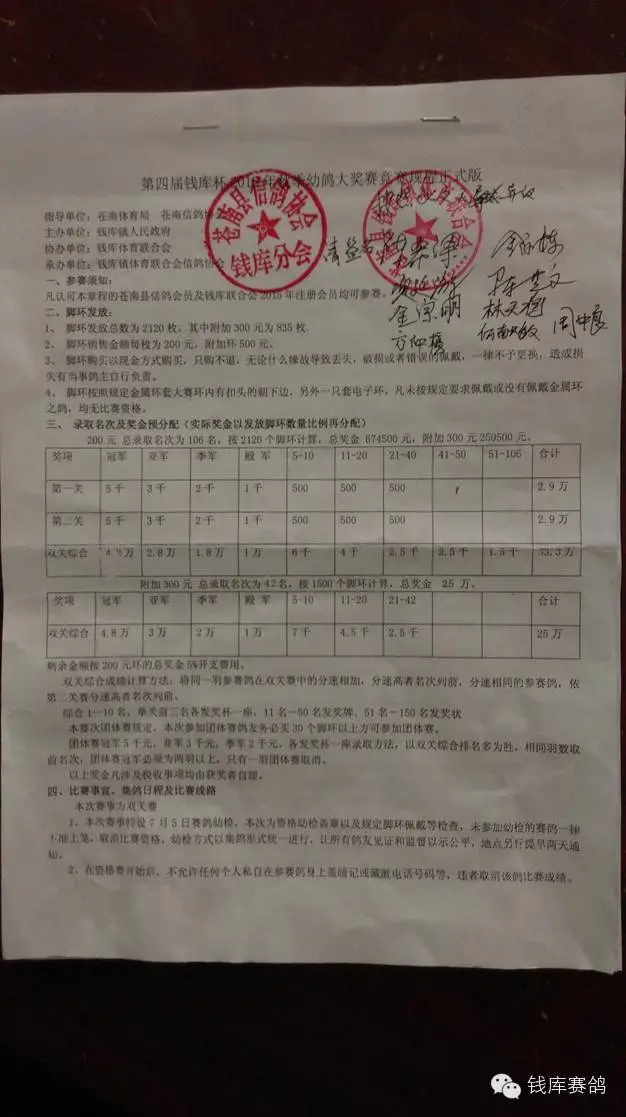 第四届钱库杯2015年秋季幼鸽大奖赛竞赛规程正式版
指导单位：苍南体育局 苍南信鸽协
主办单位：钱库镇人民政府
协办单位：钱库体育联合会
承办单位：钱库镇体育联合会信鸽协会
苍南县信鸽协会
钱库分会
金宗明
林天
陈
周中
一、参赛须知：
凡认可本章程的苍南县信鸽会员及钱库联合会2015年注册会员均可参赛。
二、脚环发放：
1、 脚环发放总数为2120枚，其中附加300元为835枚.
2、 脚环销售金额每枚为200元，附加环500元。
3、 脚环购买以现金方式购买，只购不退，无论什么缘故导致丢失，破损或者错误的佩戴，一律不予更换，造成损
失有当事鸽主自行负责。
4、 脚环按照规定金属环套大赛环内有扣头的朝下边，另外一只套电子环，凡未按规定要求佩戴或没有佩戴金属环
之鸽，均无比赛资格。
三、 录取名次及奖金预分配（实际奖金以发放脚环数量比例再分配）
200元 总录取名次为106名，按2120个脚环计算，总奖金 674500元，附加300元250500元。
奖项 冠军 亚军 季军 殿 军 5-10 11-20 21-40 41-50 51-106 合计
第一关 5千 3千 2千 1千 500 500 500 2.9万
第二关 5千 3千 2千 1千 500 500 500 2.9万
双关综合 万 2.8万 1.8万 1万 6千 4千 2.5千 2.5千 1.5千 33.3万
附加300元 总录取名次为42名，按1500个脚环计算，总奖金 25 万。
奖项 冠军 亚军 季军 殿 军 5-10 11-20 21-42 合计
双关综合 4.8万 3万 2万 1万 7千 4.5千 2.5千 25万
剩余金额按200元环的总奖金5%开支费用。
双关综合成绩计算方法：将同一羽参赛鸽在双关赛中的分速相加，分速高者名次列前，分速相同的参赛鸽，依
第二关赛分速高者名次列前。
综合1—10名，单关前三名各发奖杯一座，11名—50名发奖牌．51名－150名发奖状
本赛次团体赛规定，本次参加团体赛鸽友务必买30个脚环以上方可参加团体赛。
团体赛冠军5千元，亚军3千元，季军2千元，各发奖杯一座录取方法，以双关综合排名多为胜，相同羽数取
前名次，团体赛冠军必须为两羽以上，只有一羽团体赛取消。
以上奖金凡涉及税收事项均由获奖者自理。
四、比赛事宜、集鸽日程及比赛线路
本次赛事为双关赛
1、本次赛事特设7月5日赛鸽幼检，本次为资格幼检盖章以及规定脚环佩戴等检查，未参加幼检的赛鸽一律
不准上笼，取消比赛资格，幼检方式以集鸽形式统一进行，让所有鸽友见证和监督以示公平，地点另行提早两天通
知。
2、在资格赛开始后，不允许任何个人私自在参赛鸽身上盖暗记或藏匿电话号码等，违者取消该鸽比赛成绩。
钱库赛鸽